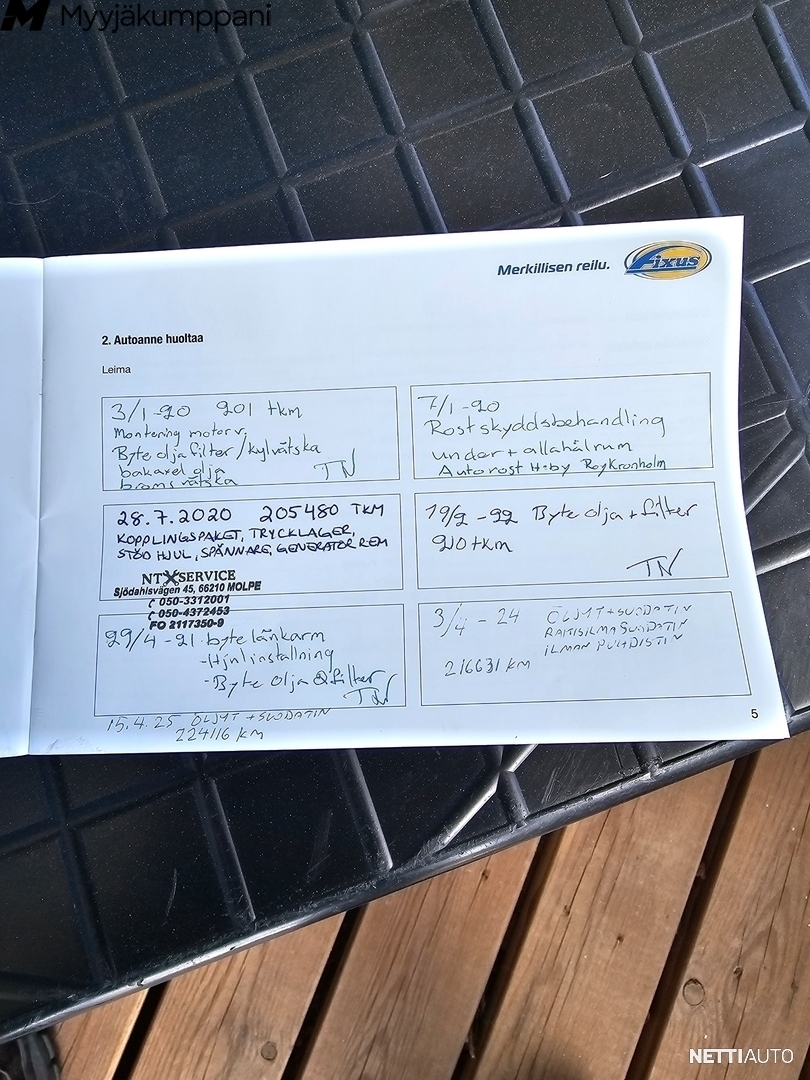 Myyjäkumppani
Merkillisen reilu.
Fixus
2. Autoanne huoltaa
Leima
3/1-20 201 tkm
Montering motorv.
Byte olja filter/kylvätska
bakaxel olja
bromsvätska
TN
7/1-20
Rostskyddsbehandling
under + allahålrum
Autorost H:by Roy Kronholm
28.7.2020 205480 TKM
KOPPLINGSPAKET, TRYCKLAGER,
STÖD HJUL, SPÄNNARE, GENERATOR REM
NTXSERVICE
Sjödahlsvägen 45, 66210 MOLPE
050-3312001
050-4372453
FO 2117350-9
19/2-22 Byte olja + filter
210 tkm
TN
29/4-21 byte länkarm
-Hjulinställning
-Byte olja & filter
TN
3/4-24 ÖLJYT + SUODATIN
RAITISILMA SUODATIN
ILMAN PUHDISTIN
216631 KM
15.4.25 ÖLJYT + SUODATIN
224116 KM
5
NETTIAUTO